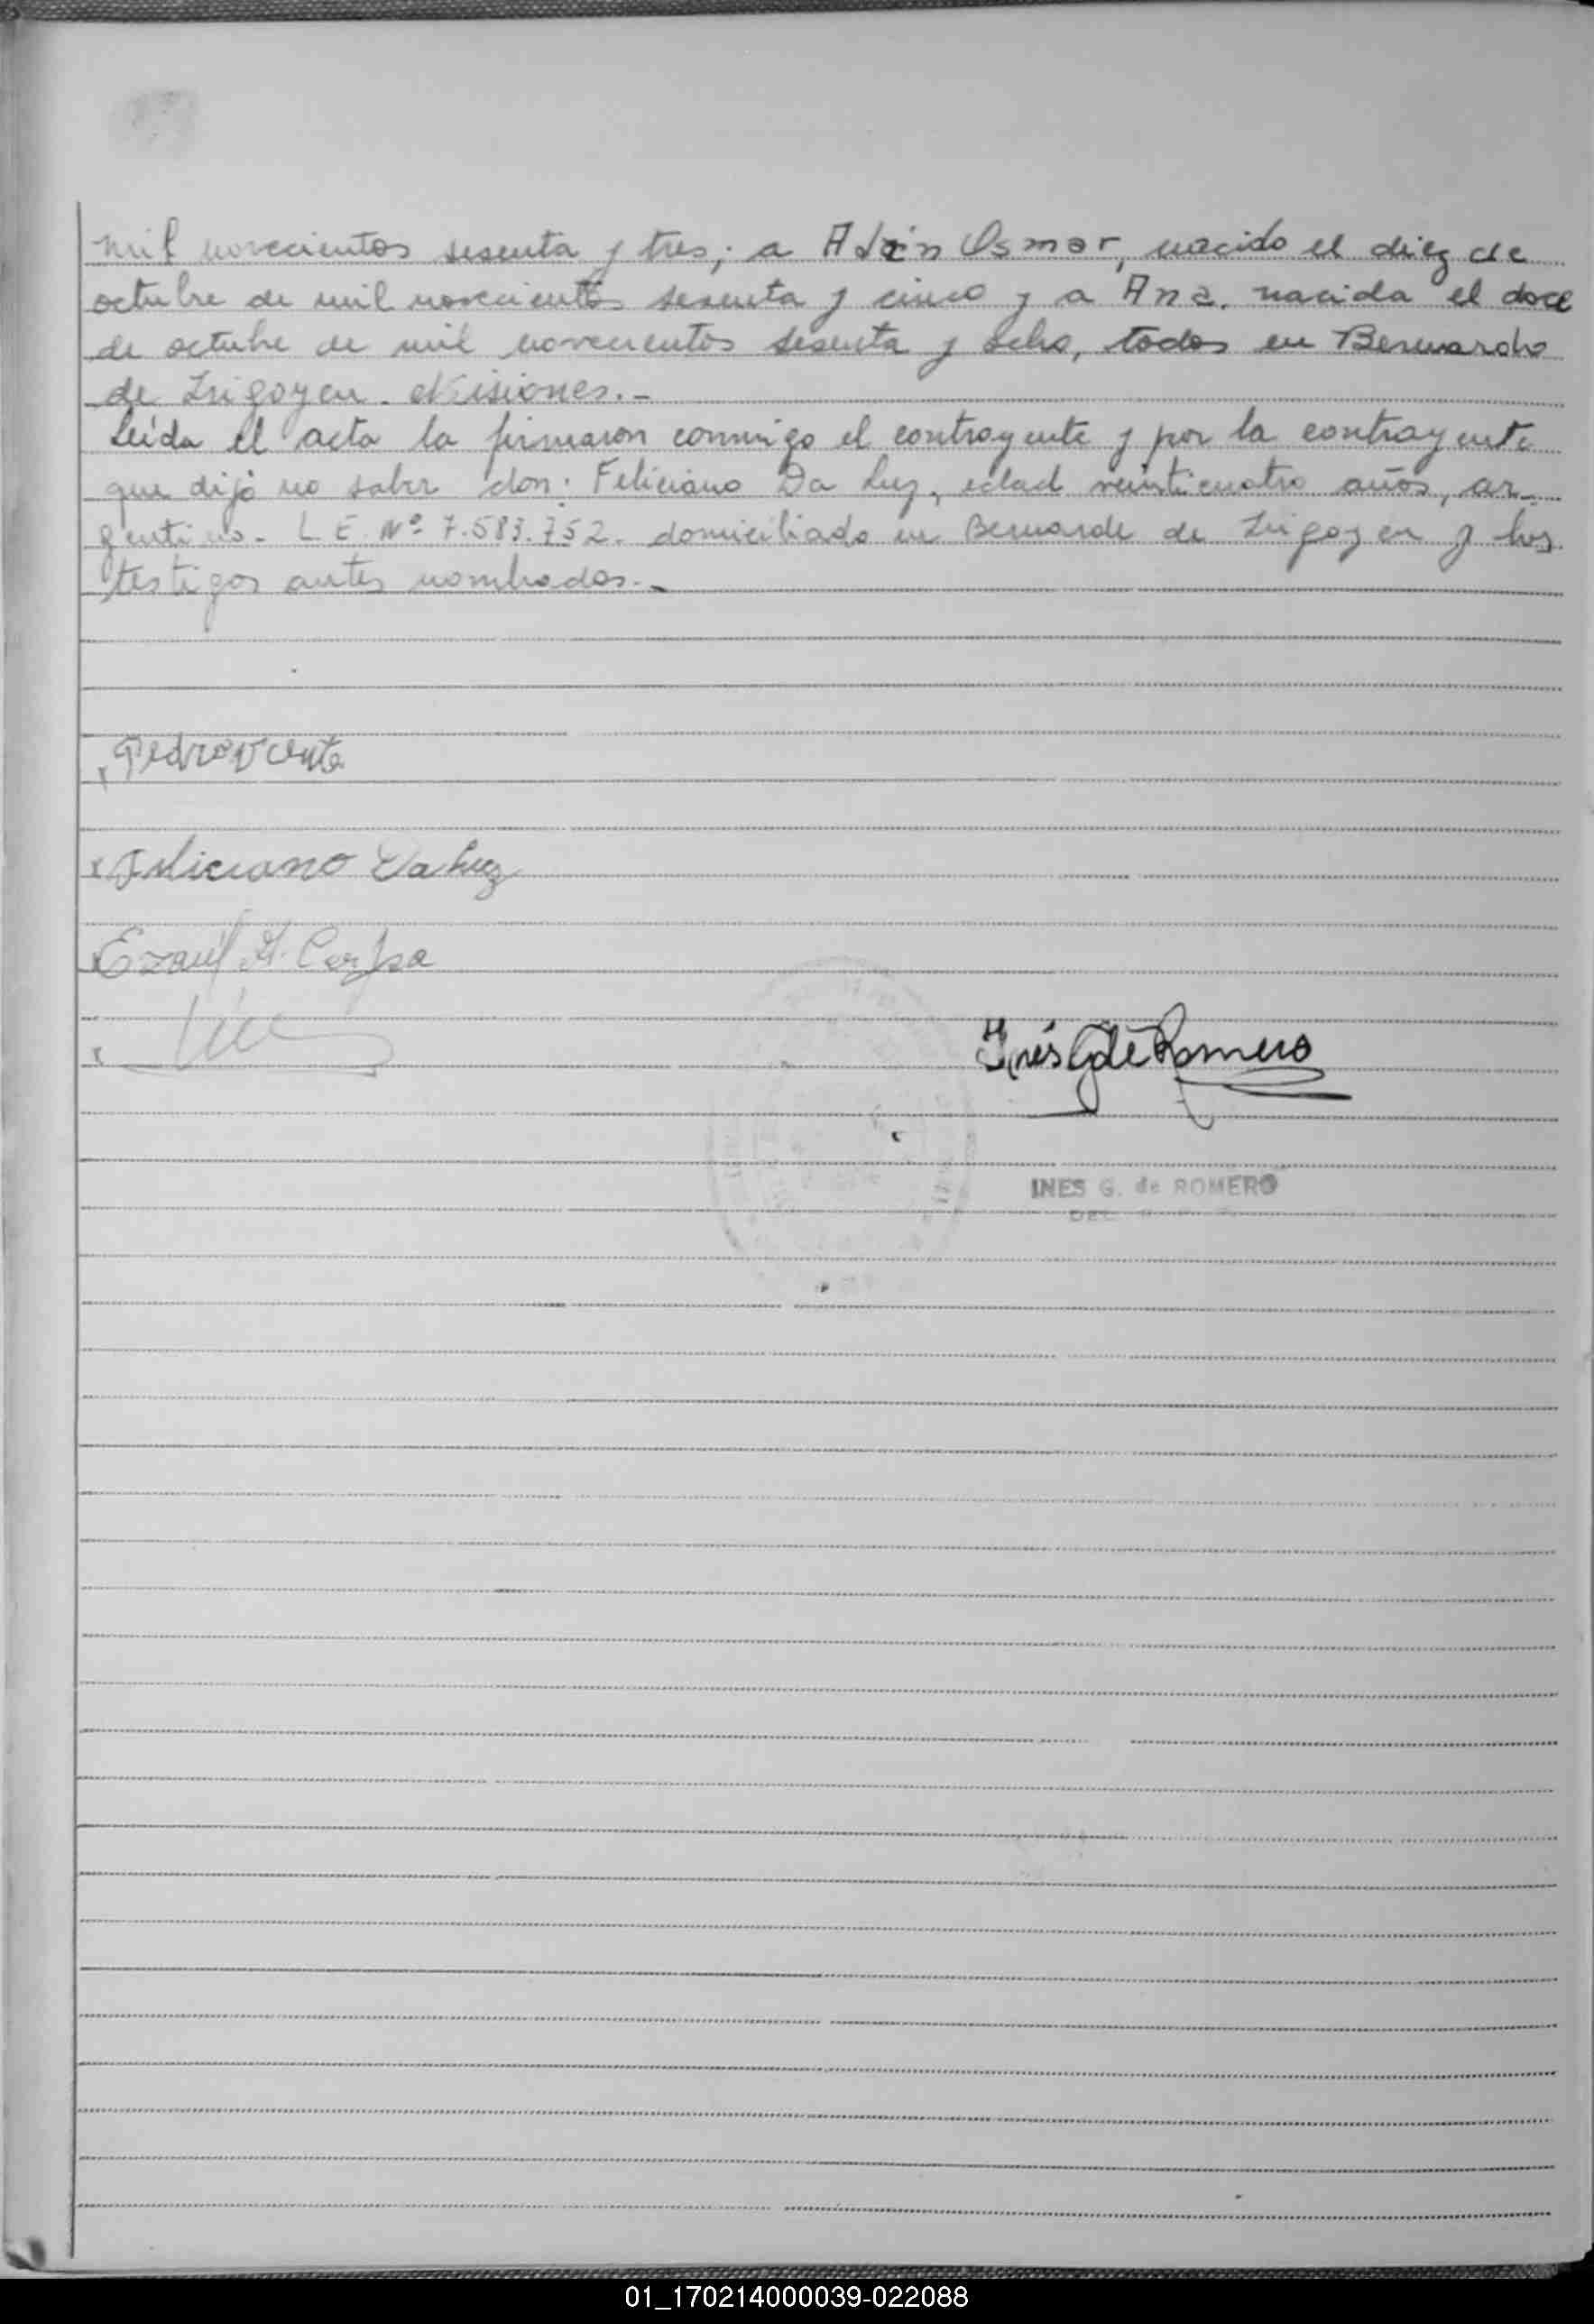 mil novecientos sesenta y tres; a Adán Osmar, nacido el diez de
octubre de mil novecientos sesenta y cinco y a Ana, nacida el doce
de octubre de mil novecientos sesenta y ocho, todos en Bernardo
de Irigoyen. Misiones.-
Leída el acta la firmaron conmigo el contrayente y por la contrayente
que dijo no saber don: Feliciano Da Luz, edad veinticuatro años, ar-
gentino. L.E. Nº 7.583.752. domiciliado en Bernardo de Irigoyen y los
testigos antes nombrados.-
Pedro Vicente
x Feliciano Da Luz
x
Inés G de Romero
INES G. de ROMERO
01_170214000039-022088